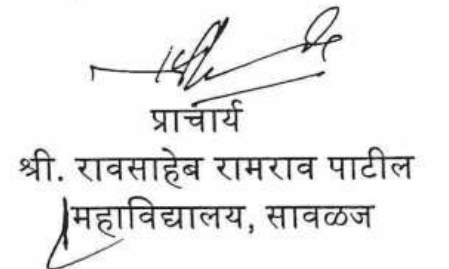 प्राचार्य
श्री. रावसाहेब रामराव पाटील
महाविद्यालय, सावळज